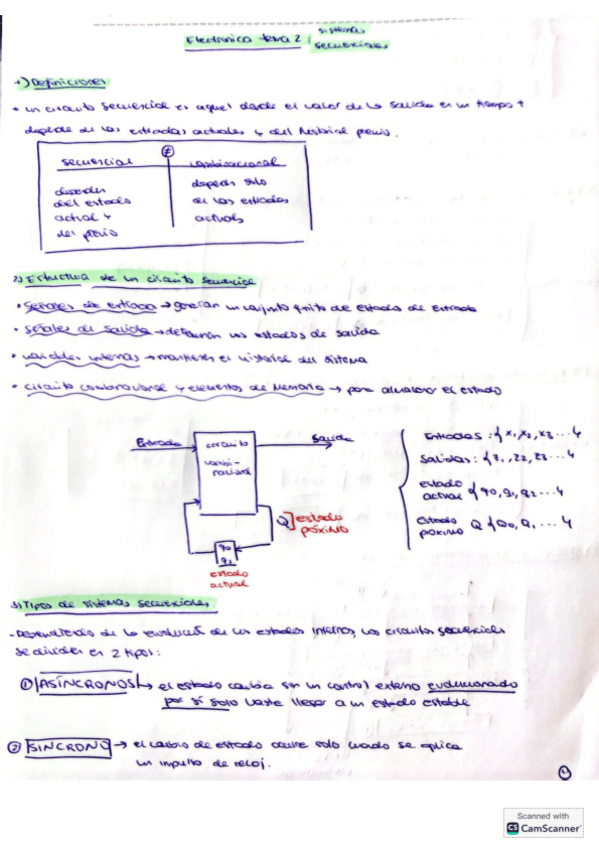 Electronica tema 2: sistemas
secuenciales
1) Definiciones
• un circuito secuencial es aquel donde el valor de la salida en un tiempo t
depende de las entradas actuales y del historial previo.
≠
secuencial combinacional
depende depende solo
del estado de las entradas
actual y actuales
del previo
2) Estructura de un circuito secuencial
• señales de entrada → generan un conjunto finito de estados de entrada
• señales de salida → determinan los estados de salida
• variables internas → mantienen el historial del sistema
• circuito combinacional y elementos de memoria → para almacenar el estado
Entrada
circuito
combi-
nacional
Salida
Q] estado
próximo
q0
q1
estado
actual
Entradas: { x1, x2, x3 ... }
Salidas: { z1, z2, z3 ... }
estado
actual q { q0, q1, q2 ... }
Estado
próximo Q { Q0, Q1, ... }
3) Tipos de sistemas secuenciales
- Dependiendo de la evolución de los estados internos, los circuitos secuenciales
se dividen en 2 tipos:
① ASÍNCRONOS → el estado cambia sin un control externo evolucionando
por si solo hasta llegar a un estado estable
② SINCRONO → el cambio de estado ocurre solo cuando se aplica
un impulso de reloj.
Scanned with
CS CamScanner